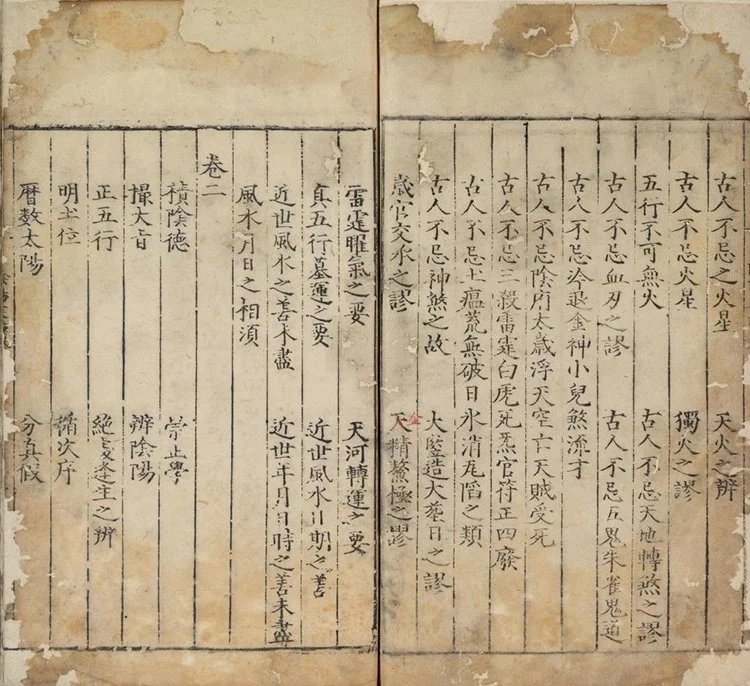 古人不忌之火星　天火之辨
古人不忌火星　獨火之謬
五行不可無火　古人不忌天地轉煞之謬
古人不忌血刃之謬　古人不忌五鬼朱雀鬼道
古人不忌冷退金神小兒煞流才
古人不忌陰府太歲浮天空亡天賊受死
古人不忌三殺雷霆白虎死炁官符正四廢
古人不忌土瘟荒無破日氷消瓦陷之類
古人不忌神煞之故　大竪造大葬日之謬
歲官交承之謬　金天精鰲極之謬
雷霆曜氣之要　天河轉運之要
真五行墓運之要　近世風水川明之善
近世風水之善未盡　近世年月日時之善未盡
風水月日之相須
卷二
積陰德　崇正學
撮大旨　辨陰陽
正五行　絕處逢生之辨
明土位　循次序
曆數太陽　分真假